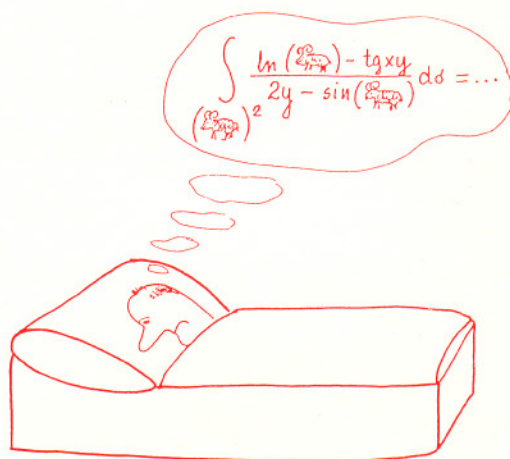 ∫ ln ( ) - tgxy
2y - sin ( ) dσ = ...
( ) 2